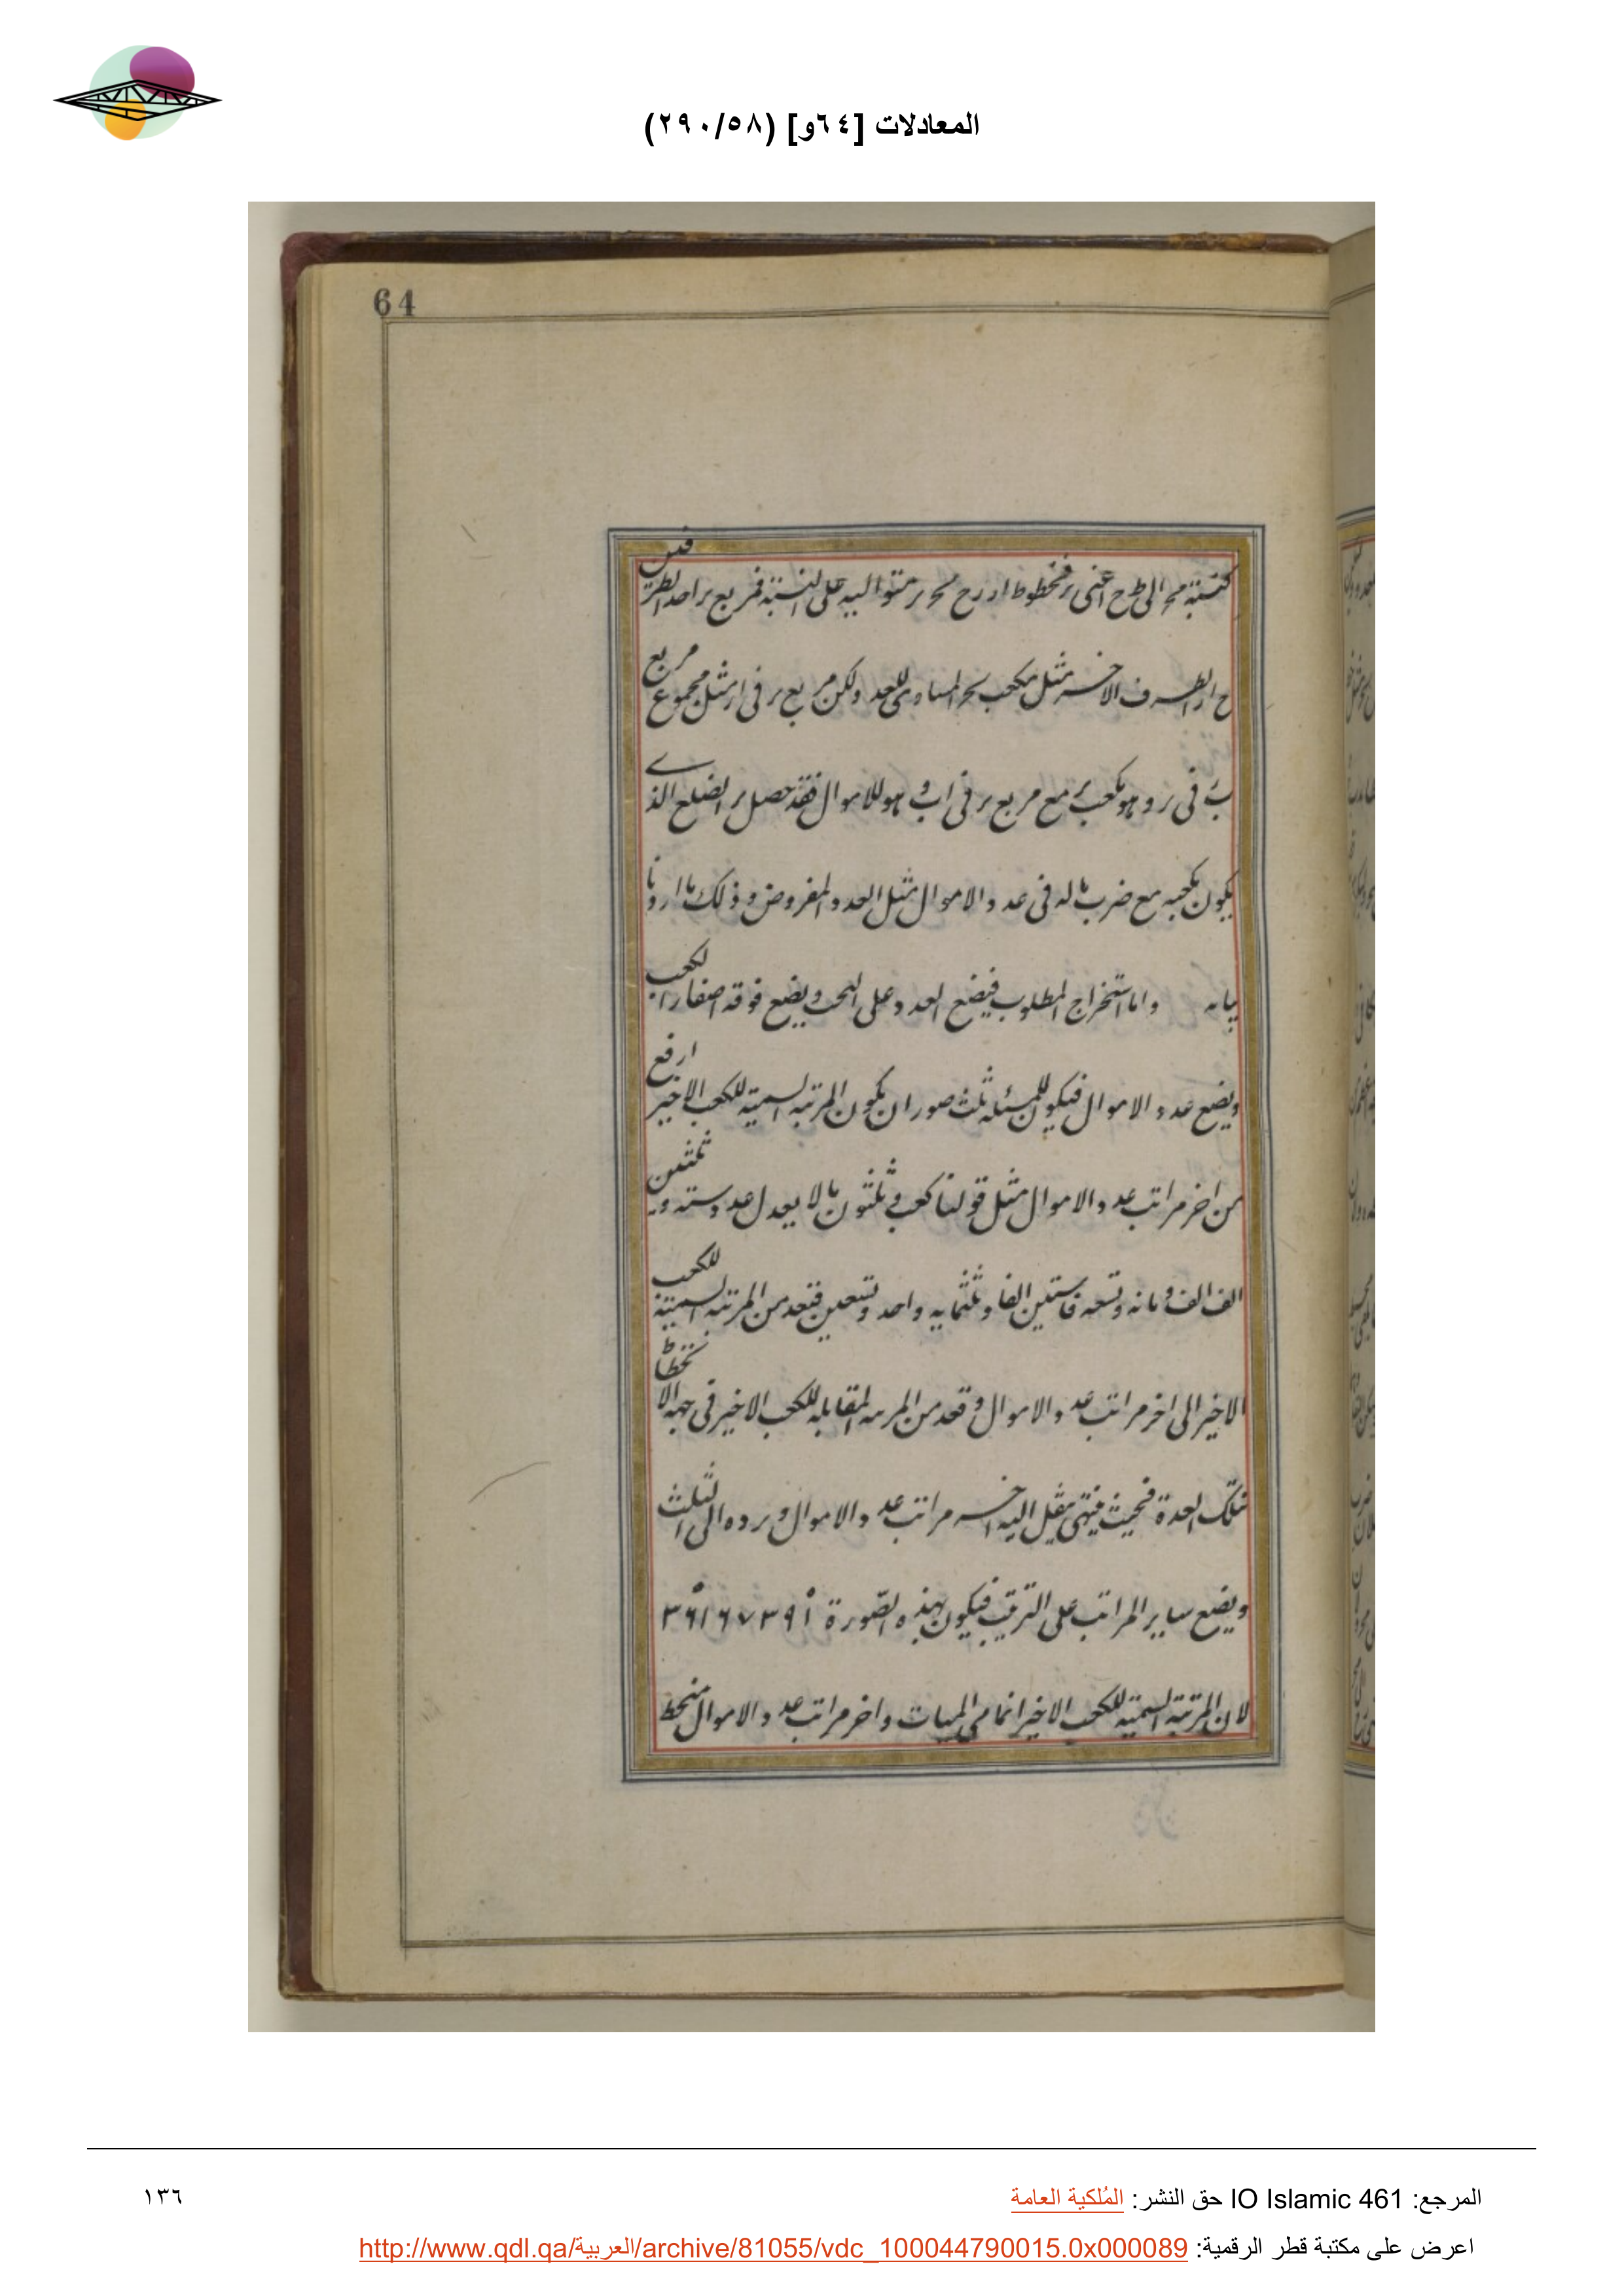 المعادلات [٦٤و] (٢٩٠/٥٨)
64
كنسبة الى ط ح اعنى فخطوط متوالية على النسبة فمربع احد الطرفين
الطرف الاخر مثل مكعب المساوى للعدد ولكن مربع فى مثل مجموع مربع
فى وهو مكعب مع مربع فى ا ب وهو للاموال فقد حصل الضلع الذے
يكون مكعبه مع ضرب ماله فى عدد الاموال مثل العدد المفروض وذلك ما اردنا
بيانه واما استخراج المطلوب فيضع العدد على التخت ويضع فوقه اصفار الكعب
ويضع عدد الاموال فيكون للمسئلة ثلث صور ان يكون المرتبه السميه للكعب الاخير ارفع
من اخر مراتب عدد الاموال مثل قولنا كعب و ثلثون مالا يعدل عدد ستة وثلثين
الف الف و مائه وتسعه وستين الفا وثلثمايه واحد وتسعين فتعد من المرتبه السميه للكعب
الاخير الى اخر مراتب عدد الاموال وتعد من المرتبه المقابله للكعب الاخير فى جهه الانحطاط
بتلك العدة فحيث ينتهى ينقل اليه اخر مراتب عدد الاموال و يرده الى الثلث
ويضع ساير المراتب على الترتيب فيكون بهذه الصّورة ٣٦١٦٧٣٩١
لان المرتبة السميه للكعب الاخير انما هى الميات واخر مراتب عدد الاموال منحط
المرجع: IO Islamic 461 حق النشر: المُلكية العامة
١٣٦
اعرض على مكتبة قطر الرقمية: http://www.qdl.qa/العربية/archive/81055/vdc_100044790015.0x000089